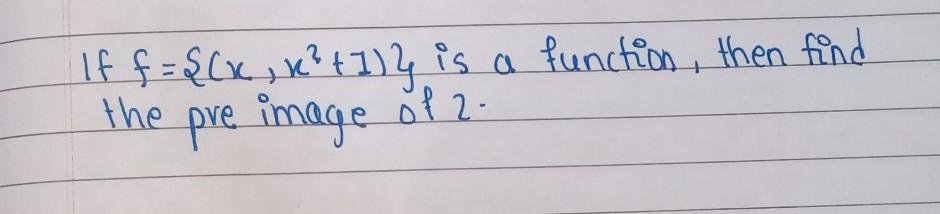 If f = {(x, x² + 1)} is a function, then find
the pre image of 2.